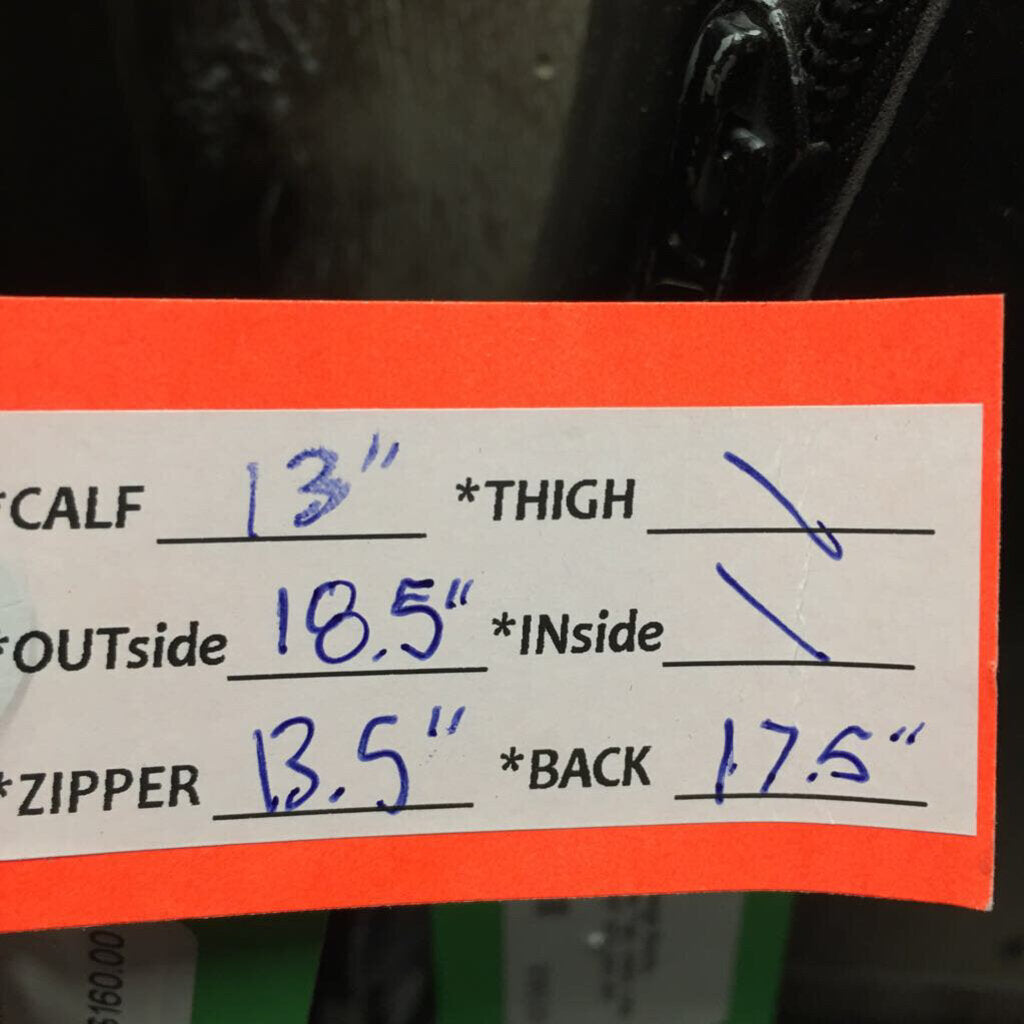 *CALF 13" *THIGH \
*OUTside 18.5" *INside \
*ZIPPER 13.5" *BACK 17.5"
$160.00